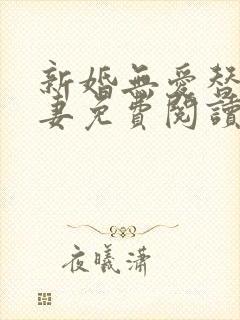 新婚無愛替
妻免費閱讀
夜曦瀟